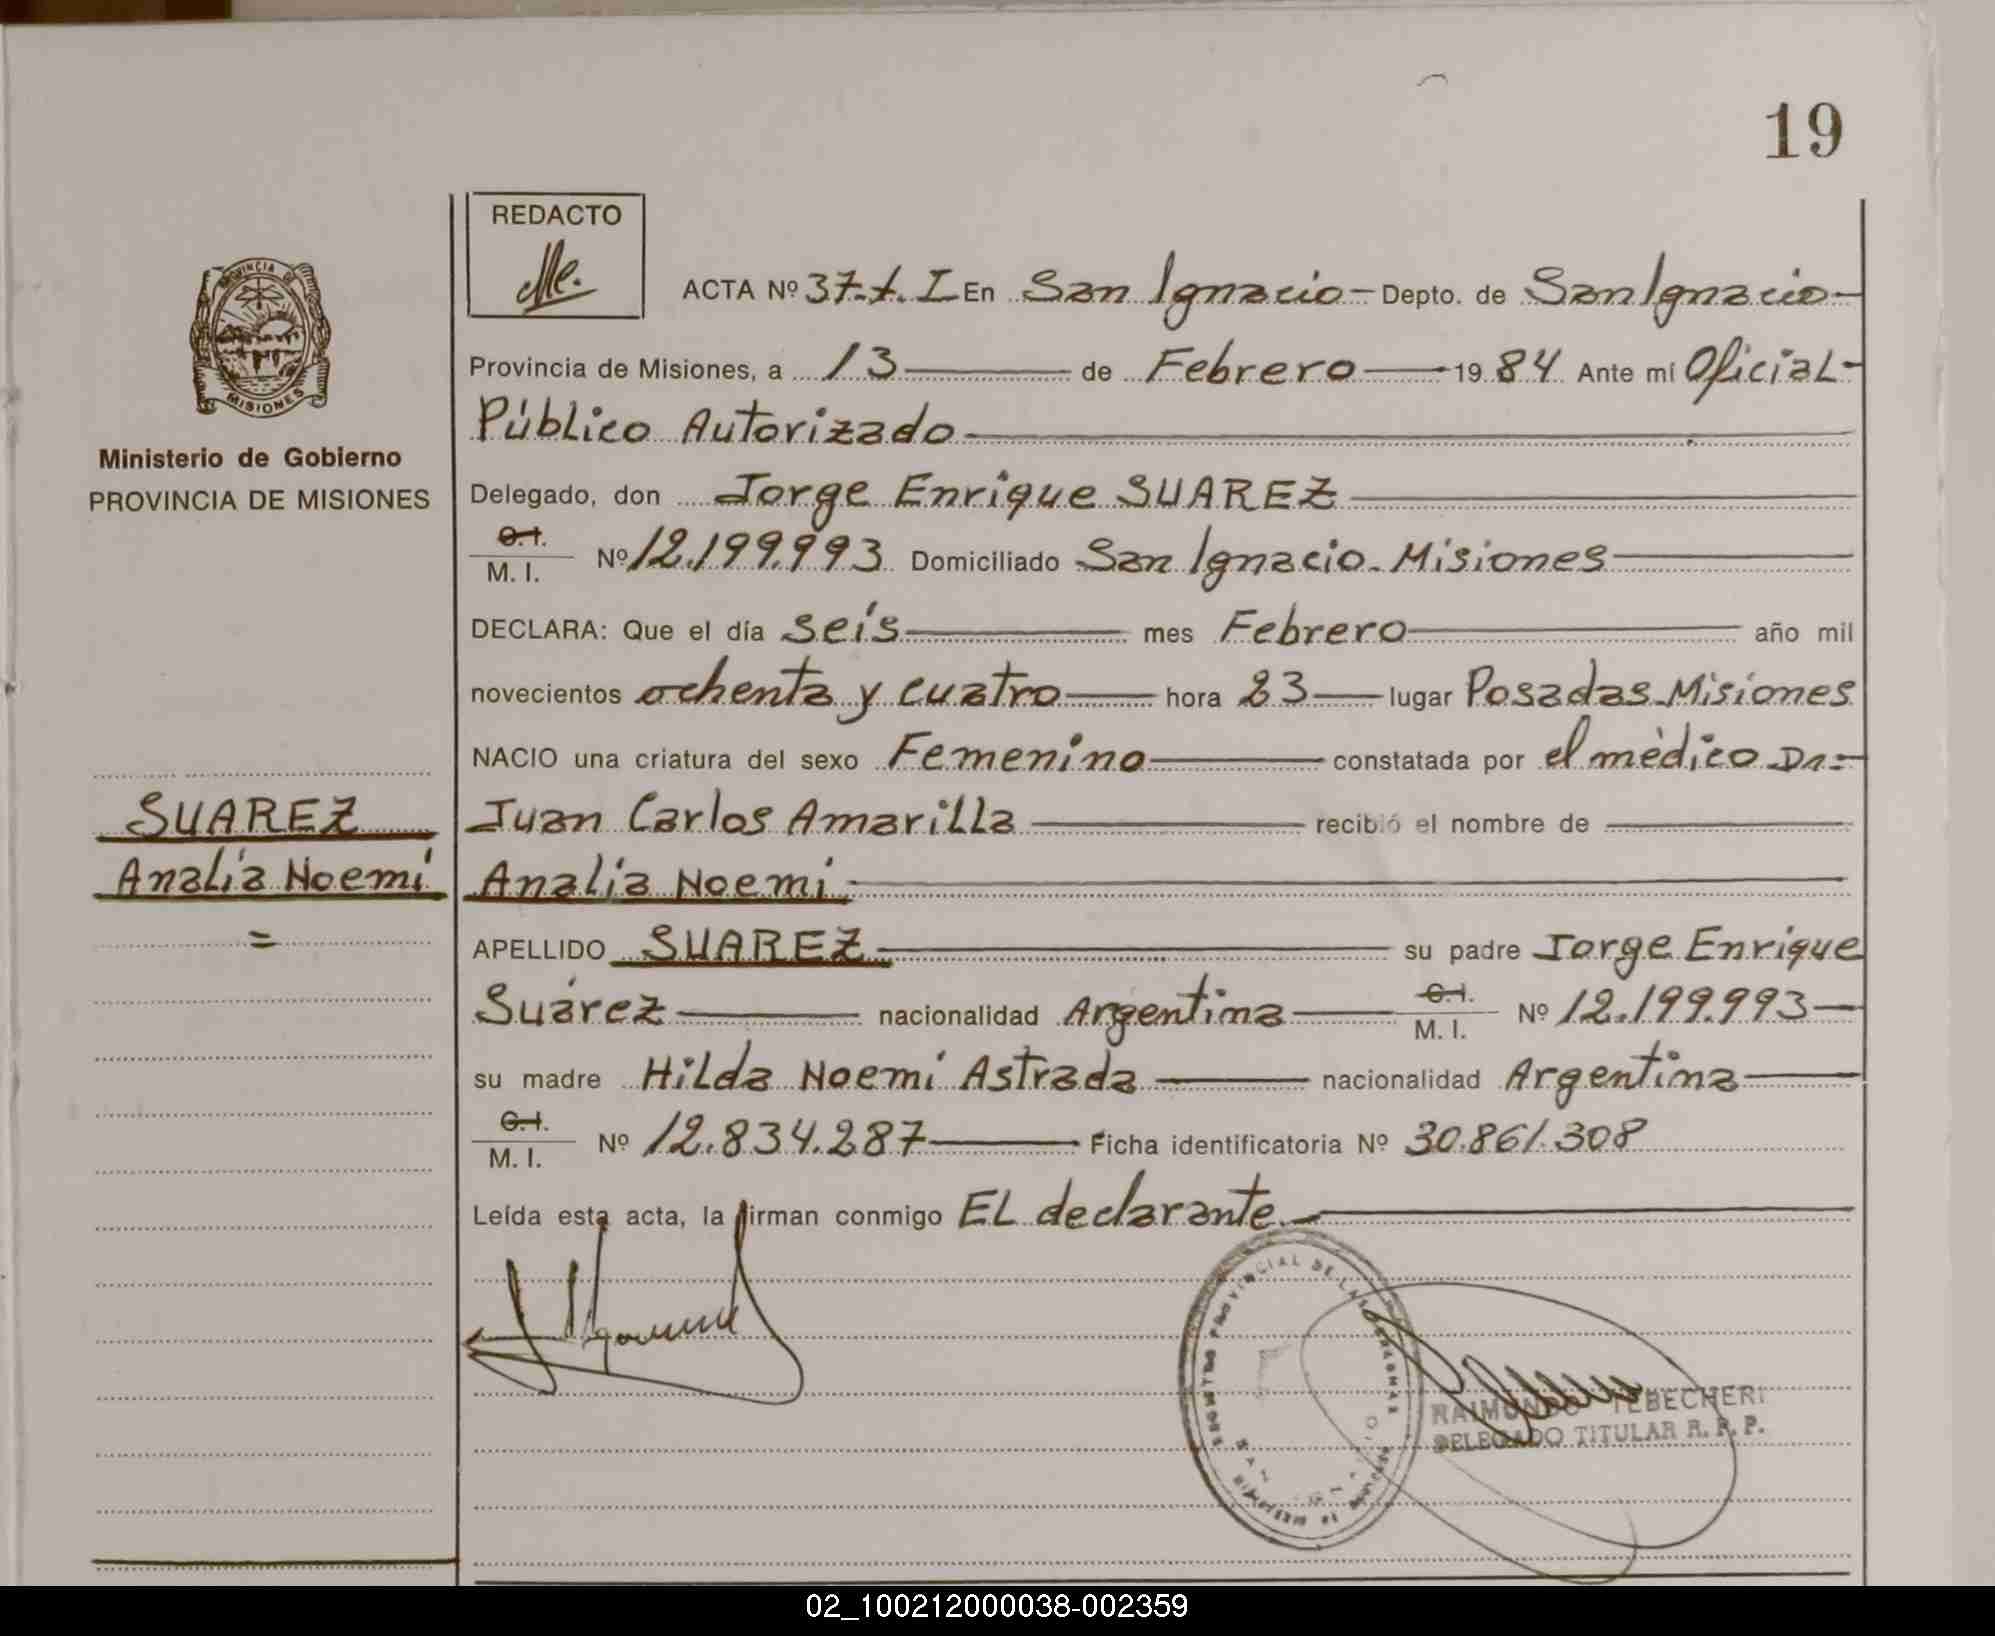 19
REDACTO
ACTA Nº 37.-t. I En San Ignacio - Depto. de San Ignacio -
Provincia de Misiones, a 13 de Febrero 1984 Ante mí Oficial -
Público Autorizado
Delegado, don Jorge Enrique SUAREZ
C.I.
M. I. Nº 12.199.993 Domiciliado San Ignacio - Misiones
DECLARA: Que el día seis mes Febrero año mil
novecientos ochenta y cuatro hora 23 lugar Posadas - Misiones
NACIO una criatura del sexo Femenino constatada por el médico Dr.
Juan Carlos Amarilla recibió el nombre de
Analía Noemí
APELLIDO SUAREZ su padre Jorge Enrique
Suárez nacionalidad Argentina C.I. M. I. Nº 12.199.993
su madre Hilda Noemí Astrada nacionalidad Argentina
C.I.
M. I. Nº 12.834.287 Ficha identificatoria Nº 30.861.308
Leída esta acta, la firman conmigo EL declarante.
PROVINCIA DE
MISIONES
Ministerio de Gobierno
PROVINCIA DE MISIONES
SUAREZ
Analía Noemí
=
PROVINCIAL DE LAS PERSONAS
RAIMUNDO TEBECHERI
DELEGADO TITULAR R. P. P.
02_100212000038-002359